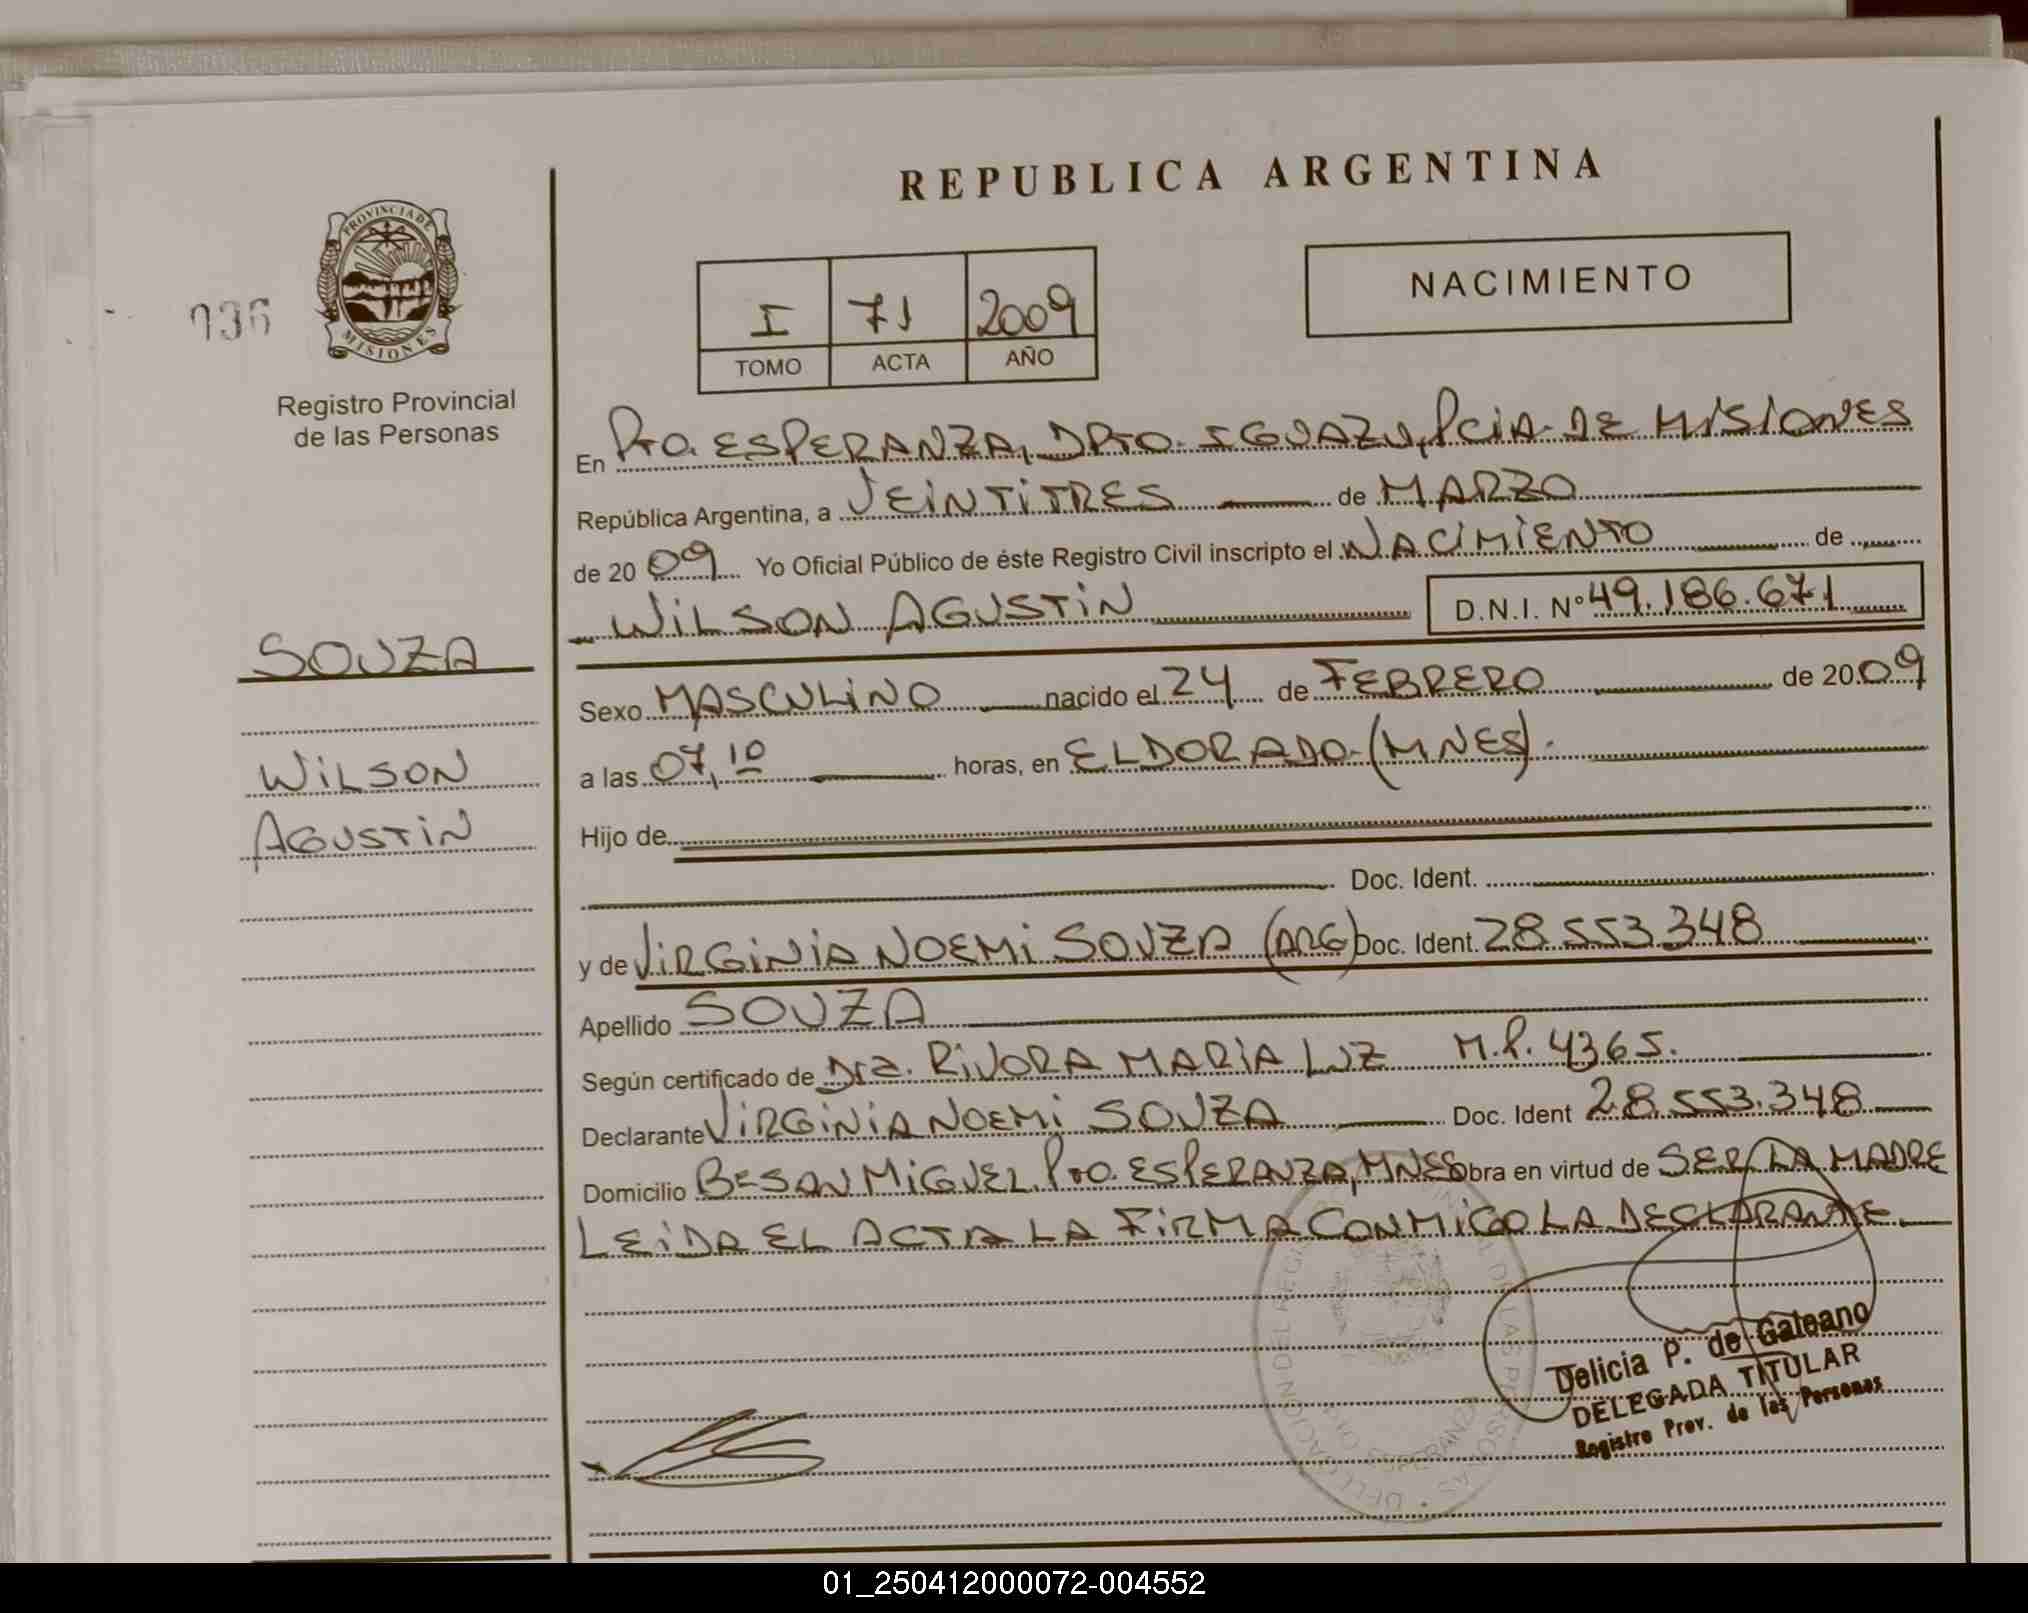 REPUBLICA ARGENTINA
PROVINCIA DE
MISIONES
036
Registro Provincial
de las Personas
I 71 2009
TOMO ACTA AÑO
NACIMIENTO
En Pto. ESPERANZA, DPTO. IGUAZU, PCIA. DE MISIONES
República Argentina, a VEINTITRES de MARZO
de 2009 Yo Oficial Público de éste Registro Civil inscripto el NACIMIENTO de
WILSON AGUSTIN D.N.I. Nº 49.186.671
SOUZA
WILSON
AGUSTIN
Sexo MASCULINO nacido el 24 de FEBRERO de 2009
a las 07,10 horas, en ELDORADO-(MNES).
Hijo de
Doc. Ident.
y de VIRGINIA NOEMI SOUZA (ARG) Doc. Ident. 28.553.348
Apellido SOUZA
Según certificado de Dra. RIVORA MARIA LUZ M.P. 4365.
Declarante VIRGINIA NOEMI SOUZA Doc. Ident 28.553.348
Domicilio Bº SAN MIGUEL Pto. ESPERANZA, MNES Obra en virtud de SER LA MADRE
LEIDA EL ACTA LA FIRMA CONMIGO LA DECLARANTE.
Delicia P. de Galeano
DELEGADA TITULAR
Registro Prov. de las Personas
01_250412000072-004552